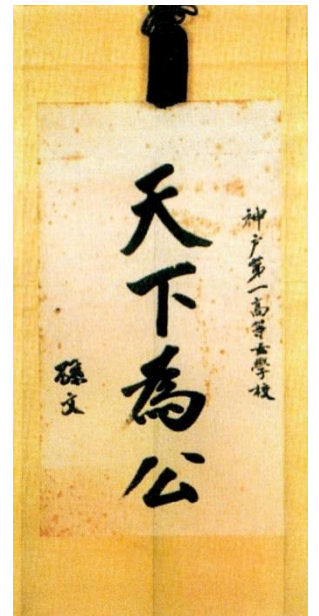 神戸第一高等女學校
天下為公
孫文